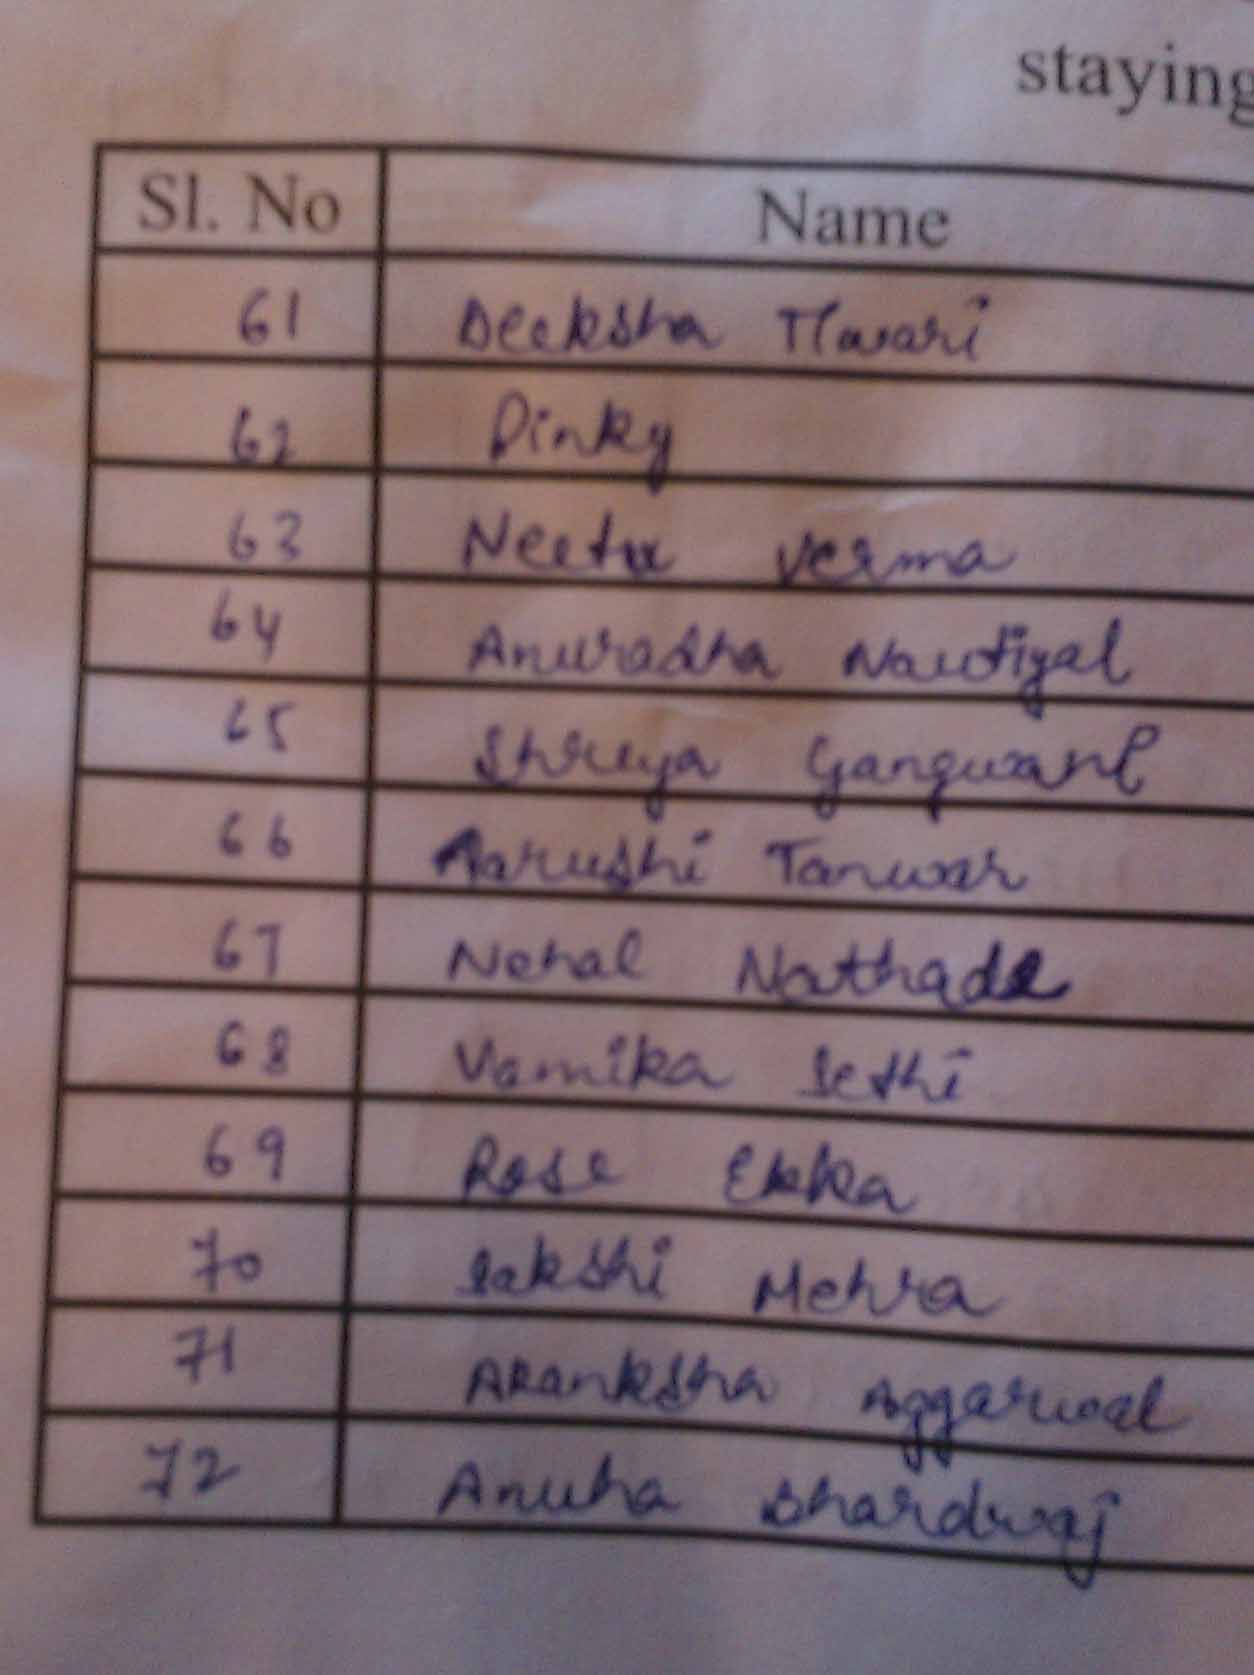 staying
Sl. No Name
61 Deeksha Tiwari
62 Dinky
63 Neetu Verma
64 Anuradha Nautiyal
65 Shreya
66 Aarushi Tanwar
67 Nehal Nathade
68 Vamika Sethi
69 Rose Ekka
70 Sakshi Mehra
71 Akanksha Aggarwal
72 Anuha Bhardwaj